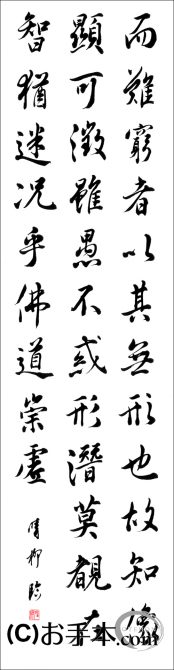 而難窮者以其無形也故知像
顯可徵雖愚不惑形潛莫覩在
智猶迷况乎佛道崇虛
晴柳臨
(C)お手本.com